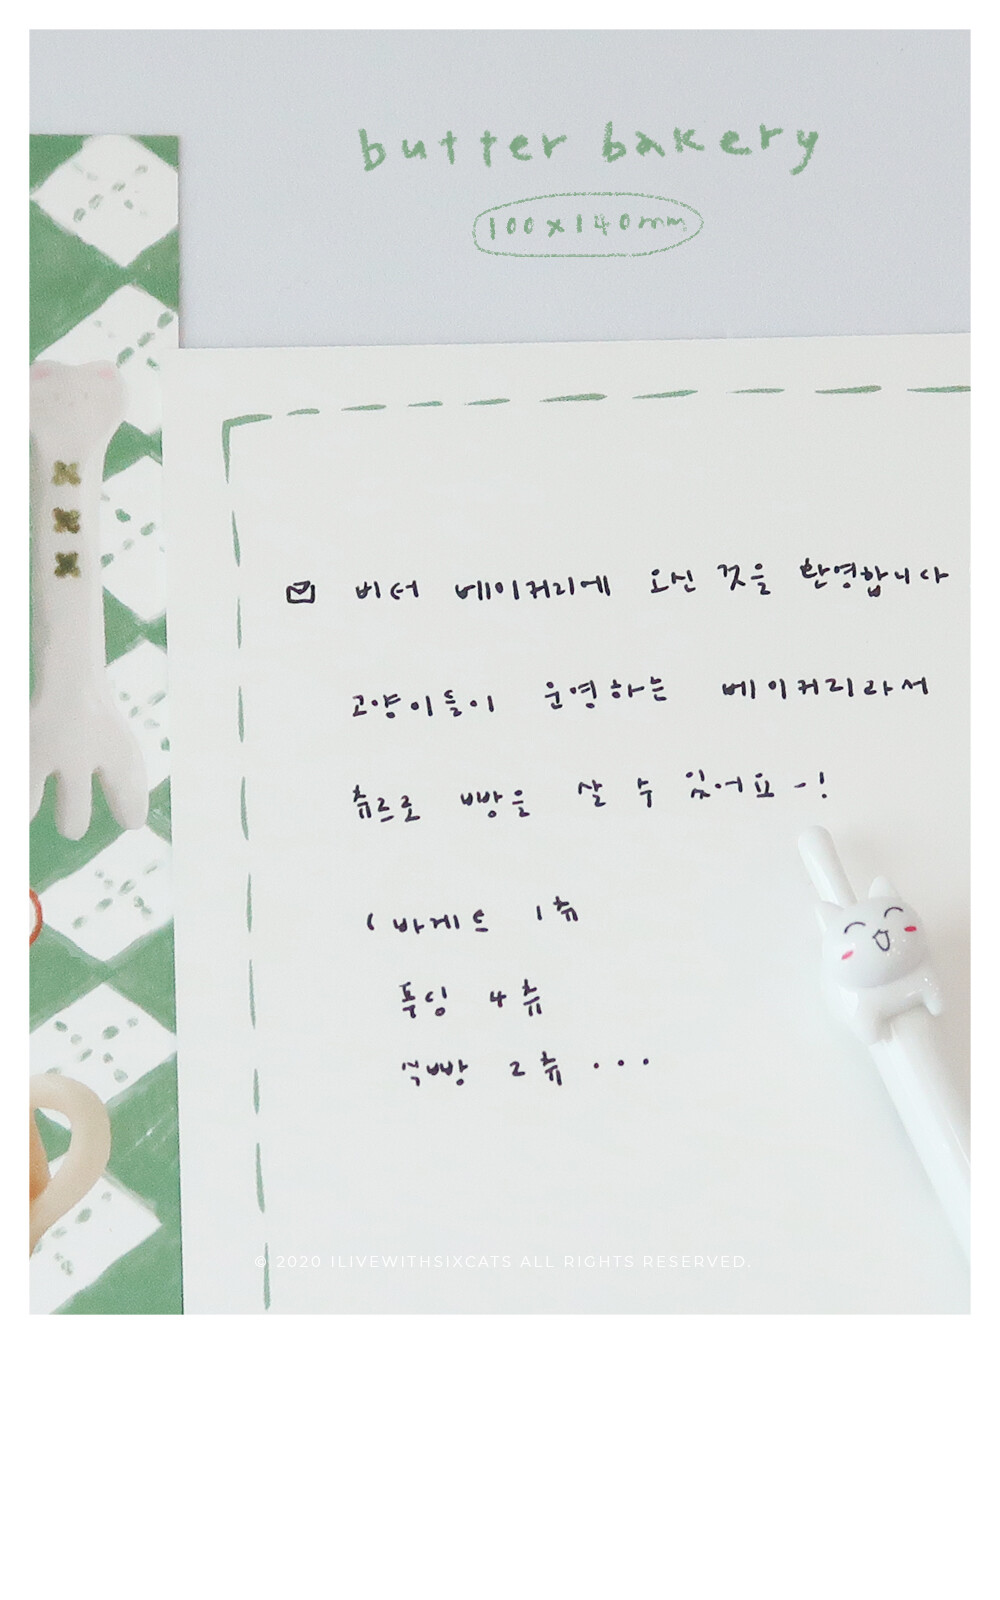 butter bakery
100x140mm
버터 베이커리에 오신 것을 환영합니다
고양이들이 운영하는 베이커리라서
츄르로 빵을 살 수 있어요-!
( 바게트 1츄
푸딩 4츄
식빵 2츄 ...
© 2020 ILIVEWITHSIXCATS ALL RIGHTS RESERVED.